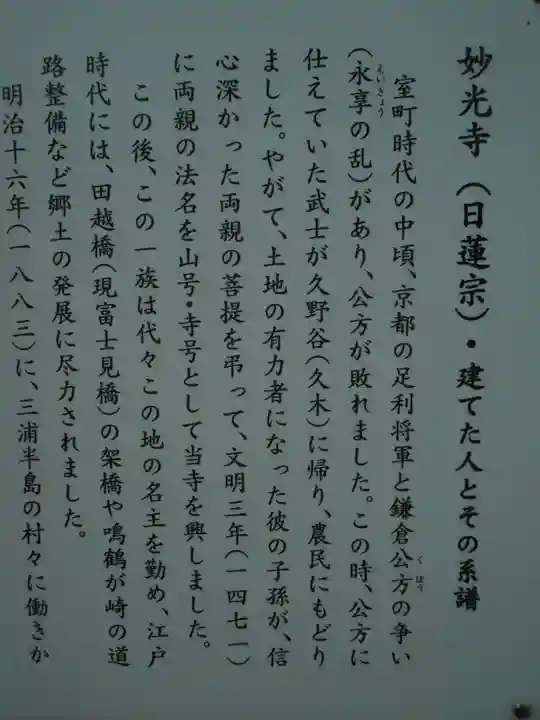 妙光寺（日蓮宗）・建てた人とその系譜
室町時代の中頃、京都の足利将軍と鎌倉公方の争い
くぼう
（永享の乱）があり、公方が敗れました。この時、公方に
えいきょう
仕えていた武士が久野谷（久木）に帰り、農民にもどり
ました。やがて、土地の有力者になった彼の子孫が、信
心深かった両親の菩提を弔って、文明三年（一四七一）
に両親の法名を山号・寺号として当寺を興しました。
この後、この一族は代々この地の名主を勤め、江戸
時代には、田越橋（現富士見橋）の架橋や鳴鶴が崎の道
路整備など郷土の発展に尽力されました。
明治十六年（一八八三）に、三浦半島の村々に働きか